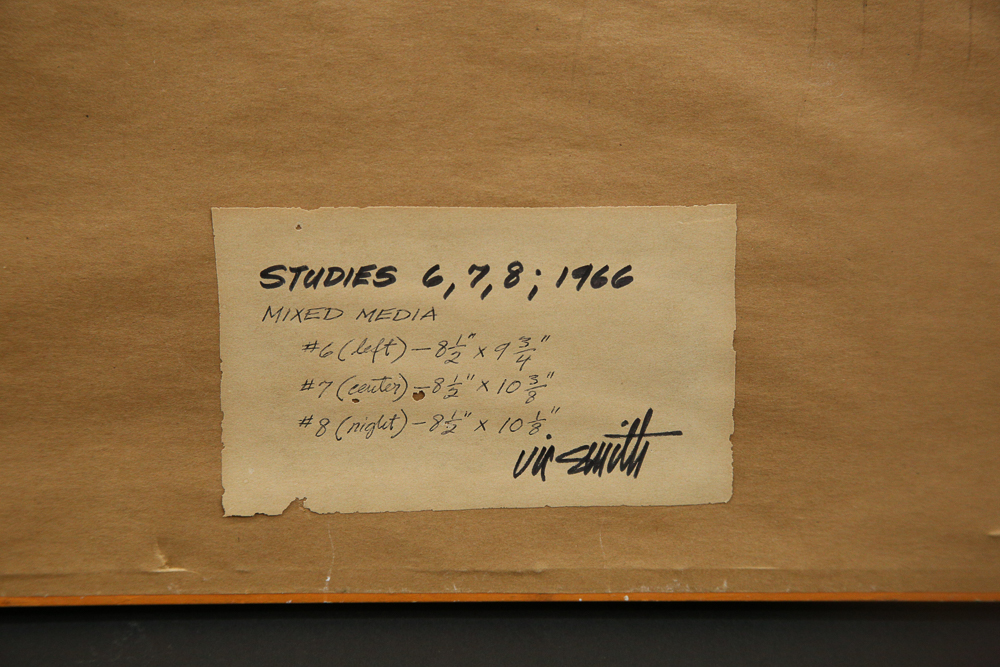 STUDIES 6,7,8; 1966
MIXED MEDIA
#6 (left) – 8 1/2" x 9 3/4"
#7 (center) – 8 1/2" x 10 3/8"
#8 (right) – 8 1/2" x 10 1/8"
vic smith